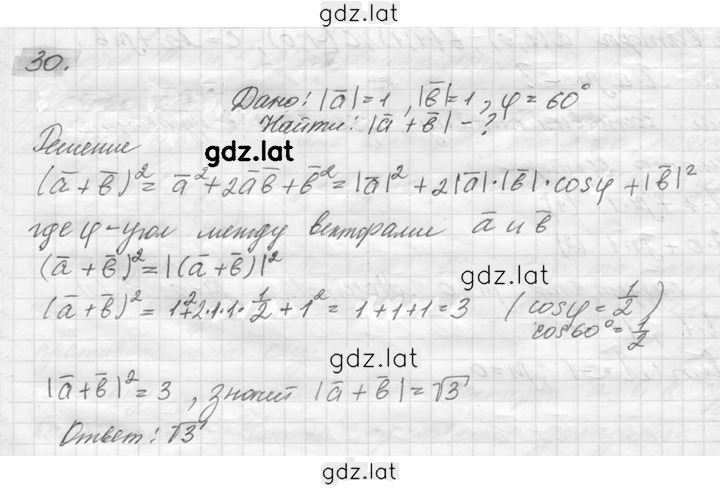 gdz.lat
30.
Дано: |a̅|=1, |b̅|=1, φ=60°
Найти: |a̅+b̅| - ?
Решение
gdz.lat
(a̅+b̅)²= a̅²+2a̅b̅+b̅²=|a̅|²+2|a̅|·|b̅|·cosφ+|b̅|²
где φ-угол между векторами a̅ и b̅
(a̅+b̅)²=|(a̅+b̅)|²
gdz.lat
(a̅+b̅)²=1²+2·1·1·1/2+1²=1+1+1=3 (cosφ=1/2)
cos60°=1/2
gdz.lat
|a̅+b̅|²=3, значит |a̅+b̅|=√3
Ответ: √3
gdz.lat